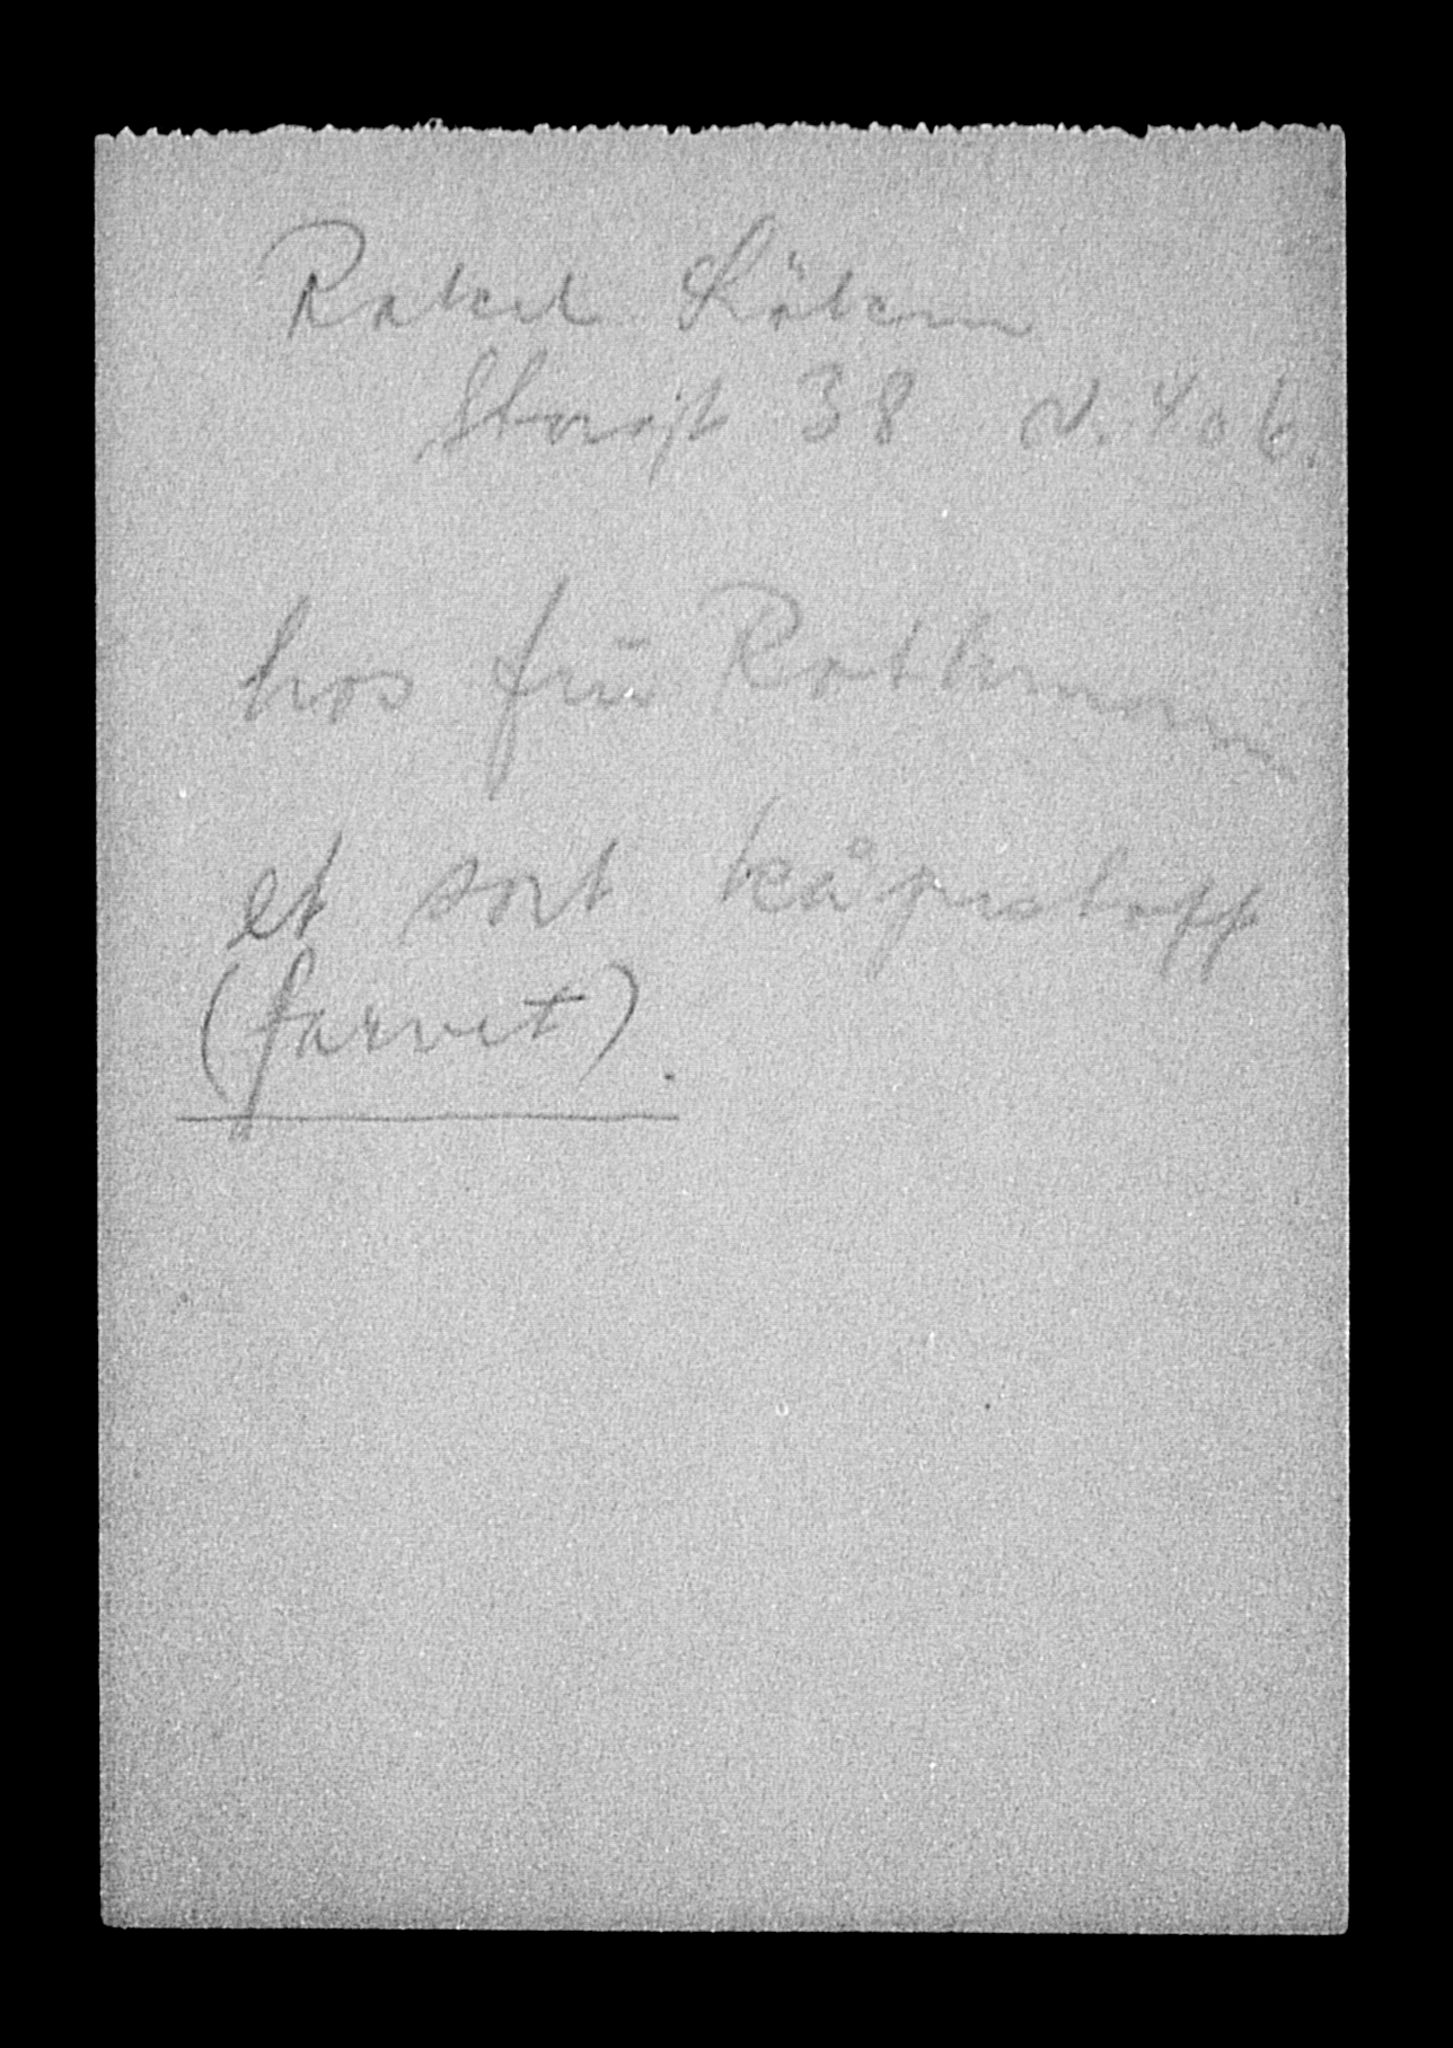 Rakel Löken
Storgt 38 V. 406.
hos fru Rothmann
et sort kåpestoff
(farvet).